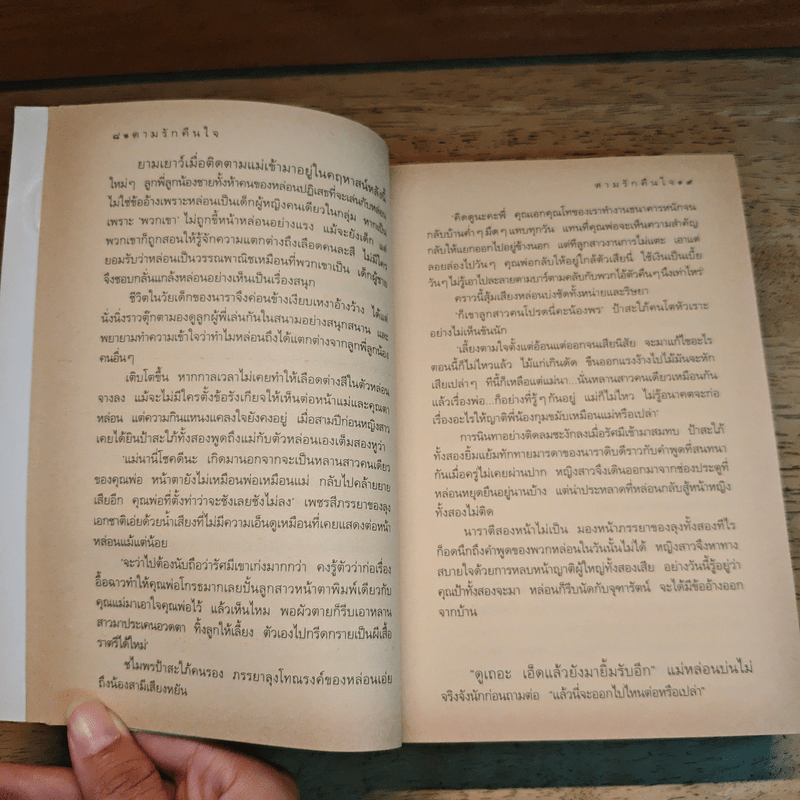 ๘ ๑ ตามรักคืนใจ
ยามเยาว์เมื่อติดตามแม่เข้ามาอยู่ในคฤหาสน์หลังนี้
ใหม่ๆ ลูกพี่ลูกน้องชายทั้งห้าคนของหล่อนปฏิเสธที่จะเล่นกับหล่อน
ไม่ใช่ข้ออ้างเพราะหล่อนเป็นเด็กผู้หญิงคนเดียวในกลุ่ม หากเป็น
เพราะ 'พวกเขา' ไม่ถูกชี้หน้าหล่อนอย่างแรง แม้จะยังเด็ก แต่
พวกเขาก็ถูกสอนให้รู้จักความแตกต่างถึงเลือดคนละสี ไม่มีใคร
ยอมรับว่าหล่อนเป็นวรรณพาณิชเหมือนที่พวกเขาเป็น เด็กผู้ชาย
จึงชอบกลั่นแกล้งหล่อนอย่างเห็นเป็นเรื่องสนุก
ชีวิตในวัยเด็กของนาราจึงค่อนข้างเงียบเหงาอ้างว้าง ได้แต่
นั่งนิ่งราวตุ๊กตามองดูลูกผู้พี่เล่นกันในสนามอย่างสนุกสนาน และ
พยายามทำความเข้าใจว่าทำไมหล่อนถึงได้แตกต่างจากลูกพี่ลูกน้อง
คนอื่นๆ
เติบโตขึ้น หากกาลเวลาไม่เคยทำให้เลือดต่างสีในตัวหล่อน
จางลง แม้จะไม่มีใครตั้งข้อรังเกียจให้เห็นต่อหน้าแม่และคุณตา
หล่อน แต่ความกินแหนงแคลงใจยังคงอยู่ เมื่อสามปีก่อนหญิงสาว
เคยได้ยินป้าสะใภ้ทั้งสองพูดถึงแม่กับตัวหล่อนเองเต็มสองหูว่า
'แม่นานี่โชคดีนะ เกิดมานอกจากจะเป็นหลานสาวคนเดียว
ของคุณพ่อ หน้าตายังไม่เหมือนพ่อเหมือนแม่ กลับไปคล้ายยาย
เสียอีก คุณพ่อที่ตั้งท่าว่าจะชังเลยชังไม่ลง' เพชรสีภรรยาของลุง
เอกชาติเอ่ยด้วยน้ำเสียงที่ไม่มีความเอ็นดูเหมือนที่เคยแสดงต่อหน้า
หล่อนแม้แต่น้อย
'จะว่าไปต้องนับถือว่ารัศมีเขาเก่งมากกว่า คงรู้ตัวว่าก่อเรื่อง
อื้อฉาวทำให้คุณพ่อโกรธมากเลยปั้นลูกสาวหน้าตาพิมพ์เดียวกับ
คุณแม่มาเอาใจคุณพ่อไว้ แล้วเห็นไหม พอผัวตายก็รีบเอาหลาน
สาวมาประเคนอวดตา ทิ้งลูกให้เลี้ยง ตัวเองไปกรีดกรายเป็นผีเสื้อ
ราตรีได้ใหม่'
ชไมพรป้าสะใภ้คนรอง ภรรยาลุงโทณรงค์ของหล่อนเอ่ย
ถึงน้องสามีเสียงหยัน
ตามรักคืนใจ ๑ ๙
'คิดดูนะคะพี่ คุณเอกคุณโทของเราทำงานธนาคารหนักจน
กลับบ้านค่ำๆ มืดๆ แทบทุกวัน แทนที่คุณพ่อจะเห็นความสำคัญ
กลับให้แยกออกไปอยู่ข้างนอก แต่ทีลูกสาวงานการไม่แตะ เอาแต่
ลอยล่องไปวันๆ คุณพ่อกลับให้อยู่ใกล้ตัวเสียนี่ ใช้เงินเป็นเบี้ย
วันๆ ไม่รู้เอาไปละลายตามบาร์ตามคลับกับพวกไอ้ตัวคืนๆ นึงเท่าไหร่'
คราวนี้สุ้มเสียงหล่อนบ่งชัดทั้งหน่ายและริษยา
'ก็เขาลูกสาวคนโปรดนี่คะน้องพร' ป้าสะใภ้คนโตหัวเราะ
อย่างไม่เห็นขันนัก
'เลี้ยงตามใจตั้งแต่อ้อนแต่ออกจนเสียนิสัย จะมาแก้ไขอะไร
ตอนนี้ก็ไม่ไหวแล้ว ไม้แก่เกินดัด ขืนออกแรงง้างไปไม้มันจะหัก
เสียเปล่าๆ ที่นี้ก็เหลือแต่แม่นา...นั่นหลานสาวคนเดียวเหมือนกัน
แล้วเรื่องพ่อ...ก็อย่างที่รู้ๆ กันอยู่ แม่ก็ไม่ไหว ไม่รู้อนาคตจะก่อ
เรื่องอะไรให้ญาติพี่น้องกุมขมับเหมือนแม่หรือเปล่า'
การนินทาอย่างติดลมชะงักลงเมื่อรัศมีเข้ามาสมทบ ป้าสะใภ้
ทั้งสองยิ้มแย้มทักทายมารดาของนาราดิบดีราวกับคำพูดที่สนทนา
กันเมื่อครู่ไม่เคยผ่านปาก หญิงสาวจึงเดินออกมาจากช่องประตูที่
หล่อนหยุดยืนอยู่นานบ้าง แต่น่าประหลาดที่หล่อนกลับสู้หน้าหญิง
ทั้งสองไม่ติด
นาราตีสองหน้าไม่เป็น มองหน้าภรรยาของลุงทั้งสองทีไร
ก็อดนึกถึงคำพูดของพวกหล่อนในวันนั้นไม่ได้ หญิงสาวจึงหาทาง
สบายใจด้วยการหลบหน้าญาติผู้ใหญ่ทั้งสองเสีย อย่างวันนี้รู้อยู่ว่า
คุณป้าทั้งสองจะมา หล่อนก็รีบนัดกับจุฑารัตน์ จะได้มีข้ออ้างออก
จากบ้าน
"ดูเถอะ เอ็ดแล้วยังมายิ้มรับอีก" แม่หล่อนบ่นไม่
จริงจังนักก่อนถามต่อ "แล้วนี่จะออกไปไหนต่อหรือเปล่า"